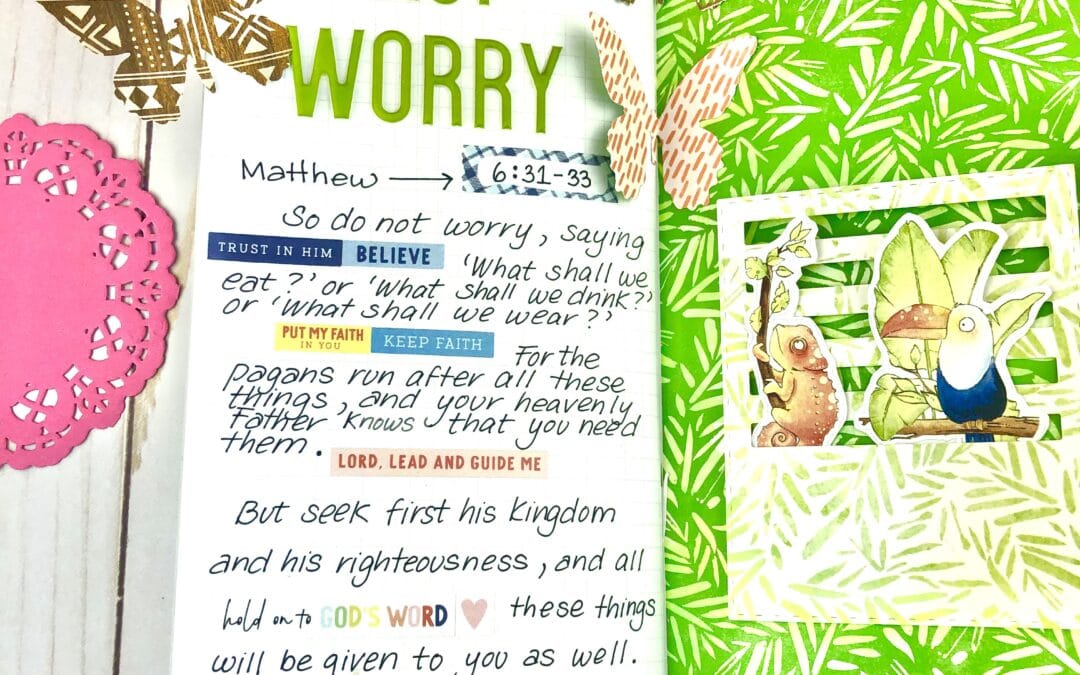 WORRY
Matthew → 6:31-33
So do not worry, saying
TRUST IN HIM BELIEVE 'What shall we
eat?' or 'What shall we drink?'
or 'What shall we wear?'
PUT MY FAITH IN YOU KEEP FAITH For the
pagans run after all these
things, and your heavenly
Father knows that you need
them.
LORD, LEAD AND GUIDE ME
But seek first his kingdom
and his righteousness, and all
hold on to GOD'S WORD these things
will be given to you as well.